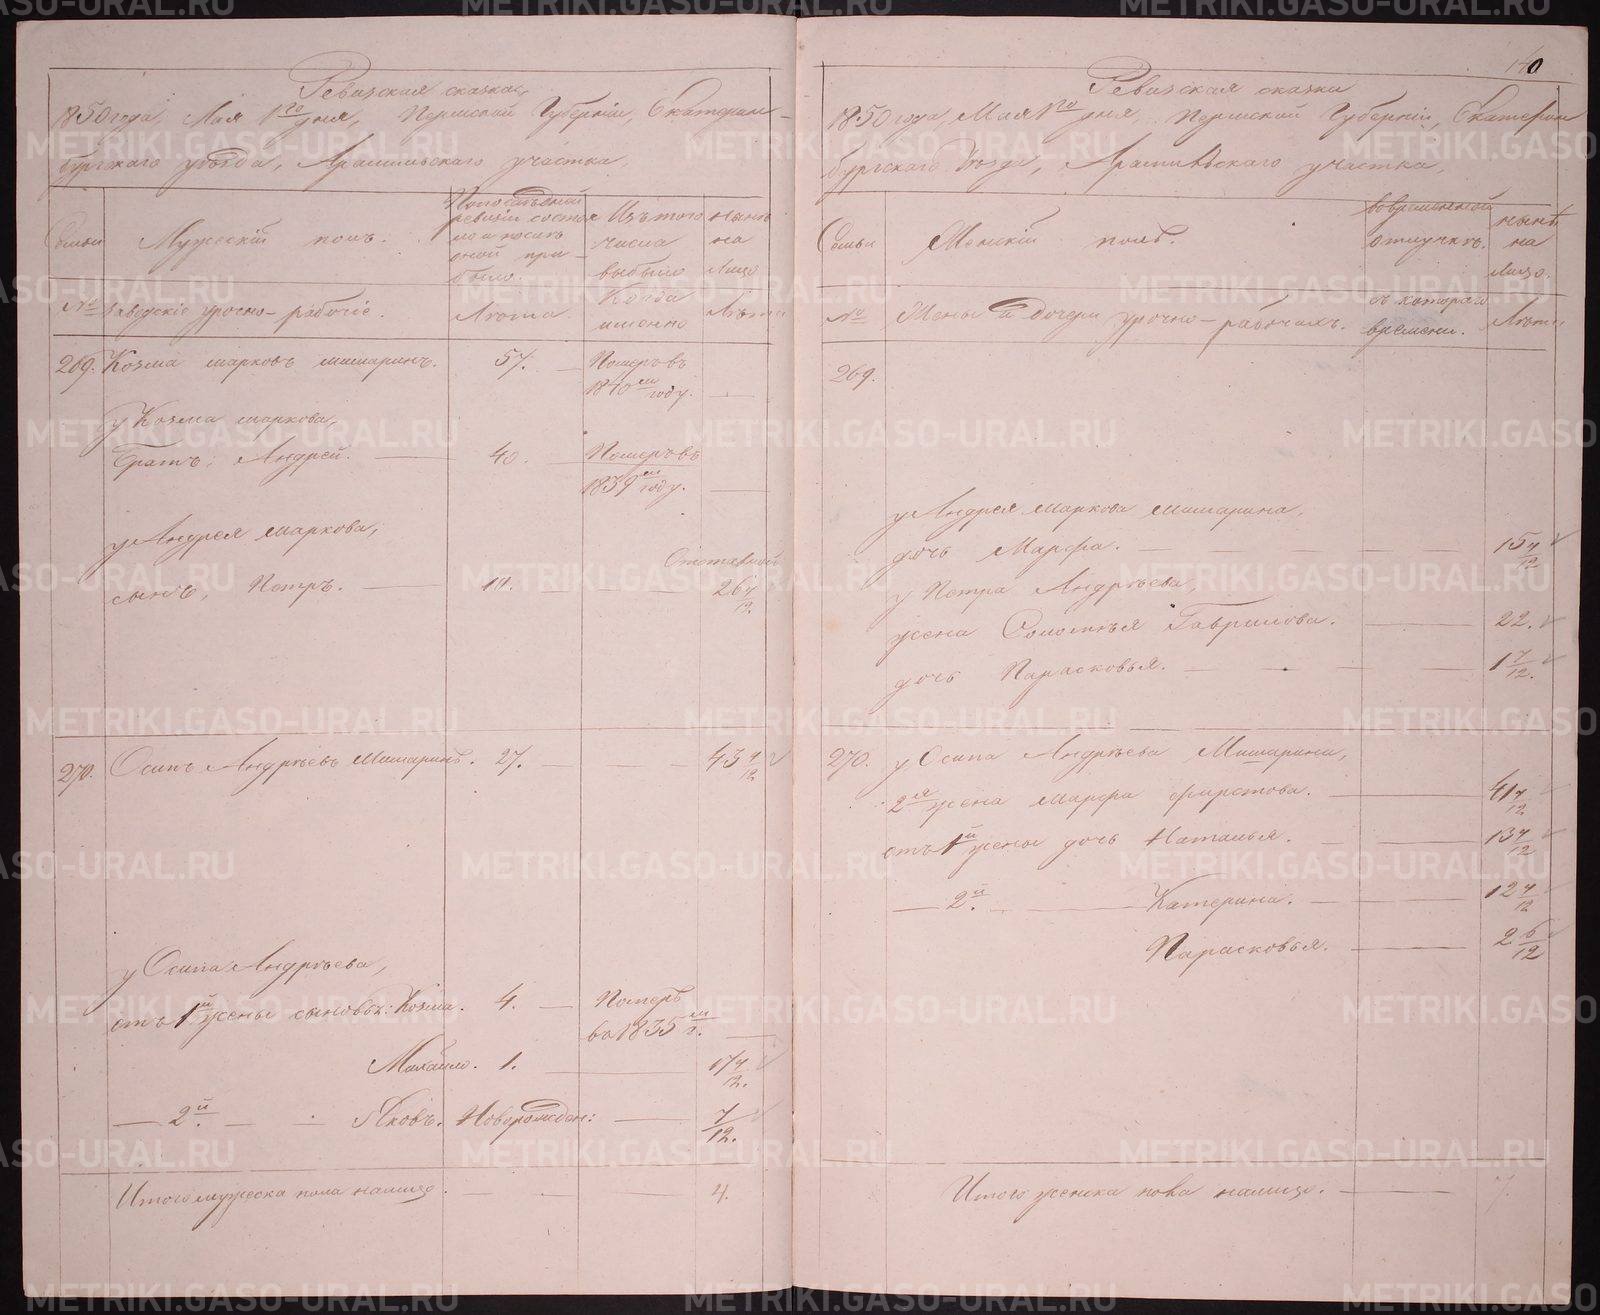 Ревизская сказка,
1850 года, Мая 1го дня, Пермской Губерніи, Екатерин-
бургского уѣзда, Арамильского участка,
Семьи
Мужескій полъ.
По последней
ревизіи состоя
ло и после
оной при-
было.
Изъ того
числа
выбыло
нынѣ
на
лицо
№
Заводскіе урочно-рабочіе.
Лета.
Когда
именно
Лѣта
269. Козма марковъ мишаринъ. 57. — Померъ въ
1840м году. —
у Козма маркова,
братъ: Андрей. — 40. — Померъ въ
1839м году. —
у Андрея маркова,
сынъ, Петръ. — 10. — —
Отставной
26 7/12.
270. Осипъ Андрѣевъ Мишаринъ. 27. — — 43 4/12
у Осипа Андрѣева,
отъ 1й жены сыновья: Козма. 4. — Померъ
во 1835м г. —
Михайло. 1. — 17 7/12.
— 2й. — Яковъ. Новорожден: — 7/12.
Итого мужеска пола налицо. — — 4.
140
Ревизская сказка
1850 года, Мая 1го дня, Пермской Губерніи, Екатерин
бургского Уѣзда, Арамильского участка,
Семьи
Женскій полъ.
во временной
отлучкѣ.
нынѣ
на
лицо.
№
Жены и дочери урочно-рабочихъ.
съ котораго
времени.
Лѣта
269.
у Андрея Маркова Мишарина,
дочь Марфа. — — — — 15 7/12
у Петра Андрѣева,
жена Соломѣья Гаврилова. — 22.
дочь Парасковья. — — — 1 7/12.
270. у Осипа Андрѣева Мишарина,
2я жена Марфа фирстова. — 41 7/12
отъ 1й жены дочь Наталья. — — 13 7/12
— 2й. — — Катерина. — — 12 7/12
Парасковья. — — 2 6/12
Итого женска пола налицо. — 7.
METRIKI.GASO-URAL.RU